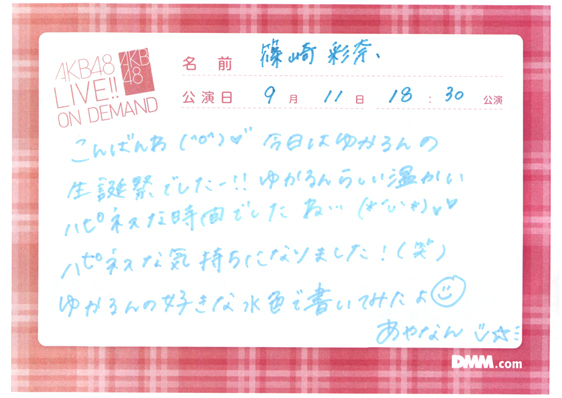 AKB48
LIVE!!
ON DEMAND
AKB
48
名前 篠崎 彩奈、
公演日 9月 11日 18:30 公演
こんばんわ(^o^)♥ 今日はゆかるんの
生誕祭でしたー!! ゆかるんらしい温かい
ハピネスな時間でしたね… (*^^*)♥♥
ハピネスな気持ちになりました!(笑)
ゆかるんの好きな水色で書いてみたよ☺
あやなん
DMM.com